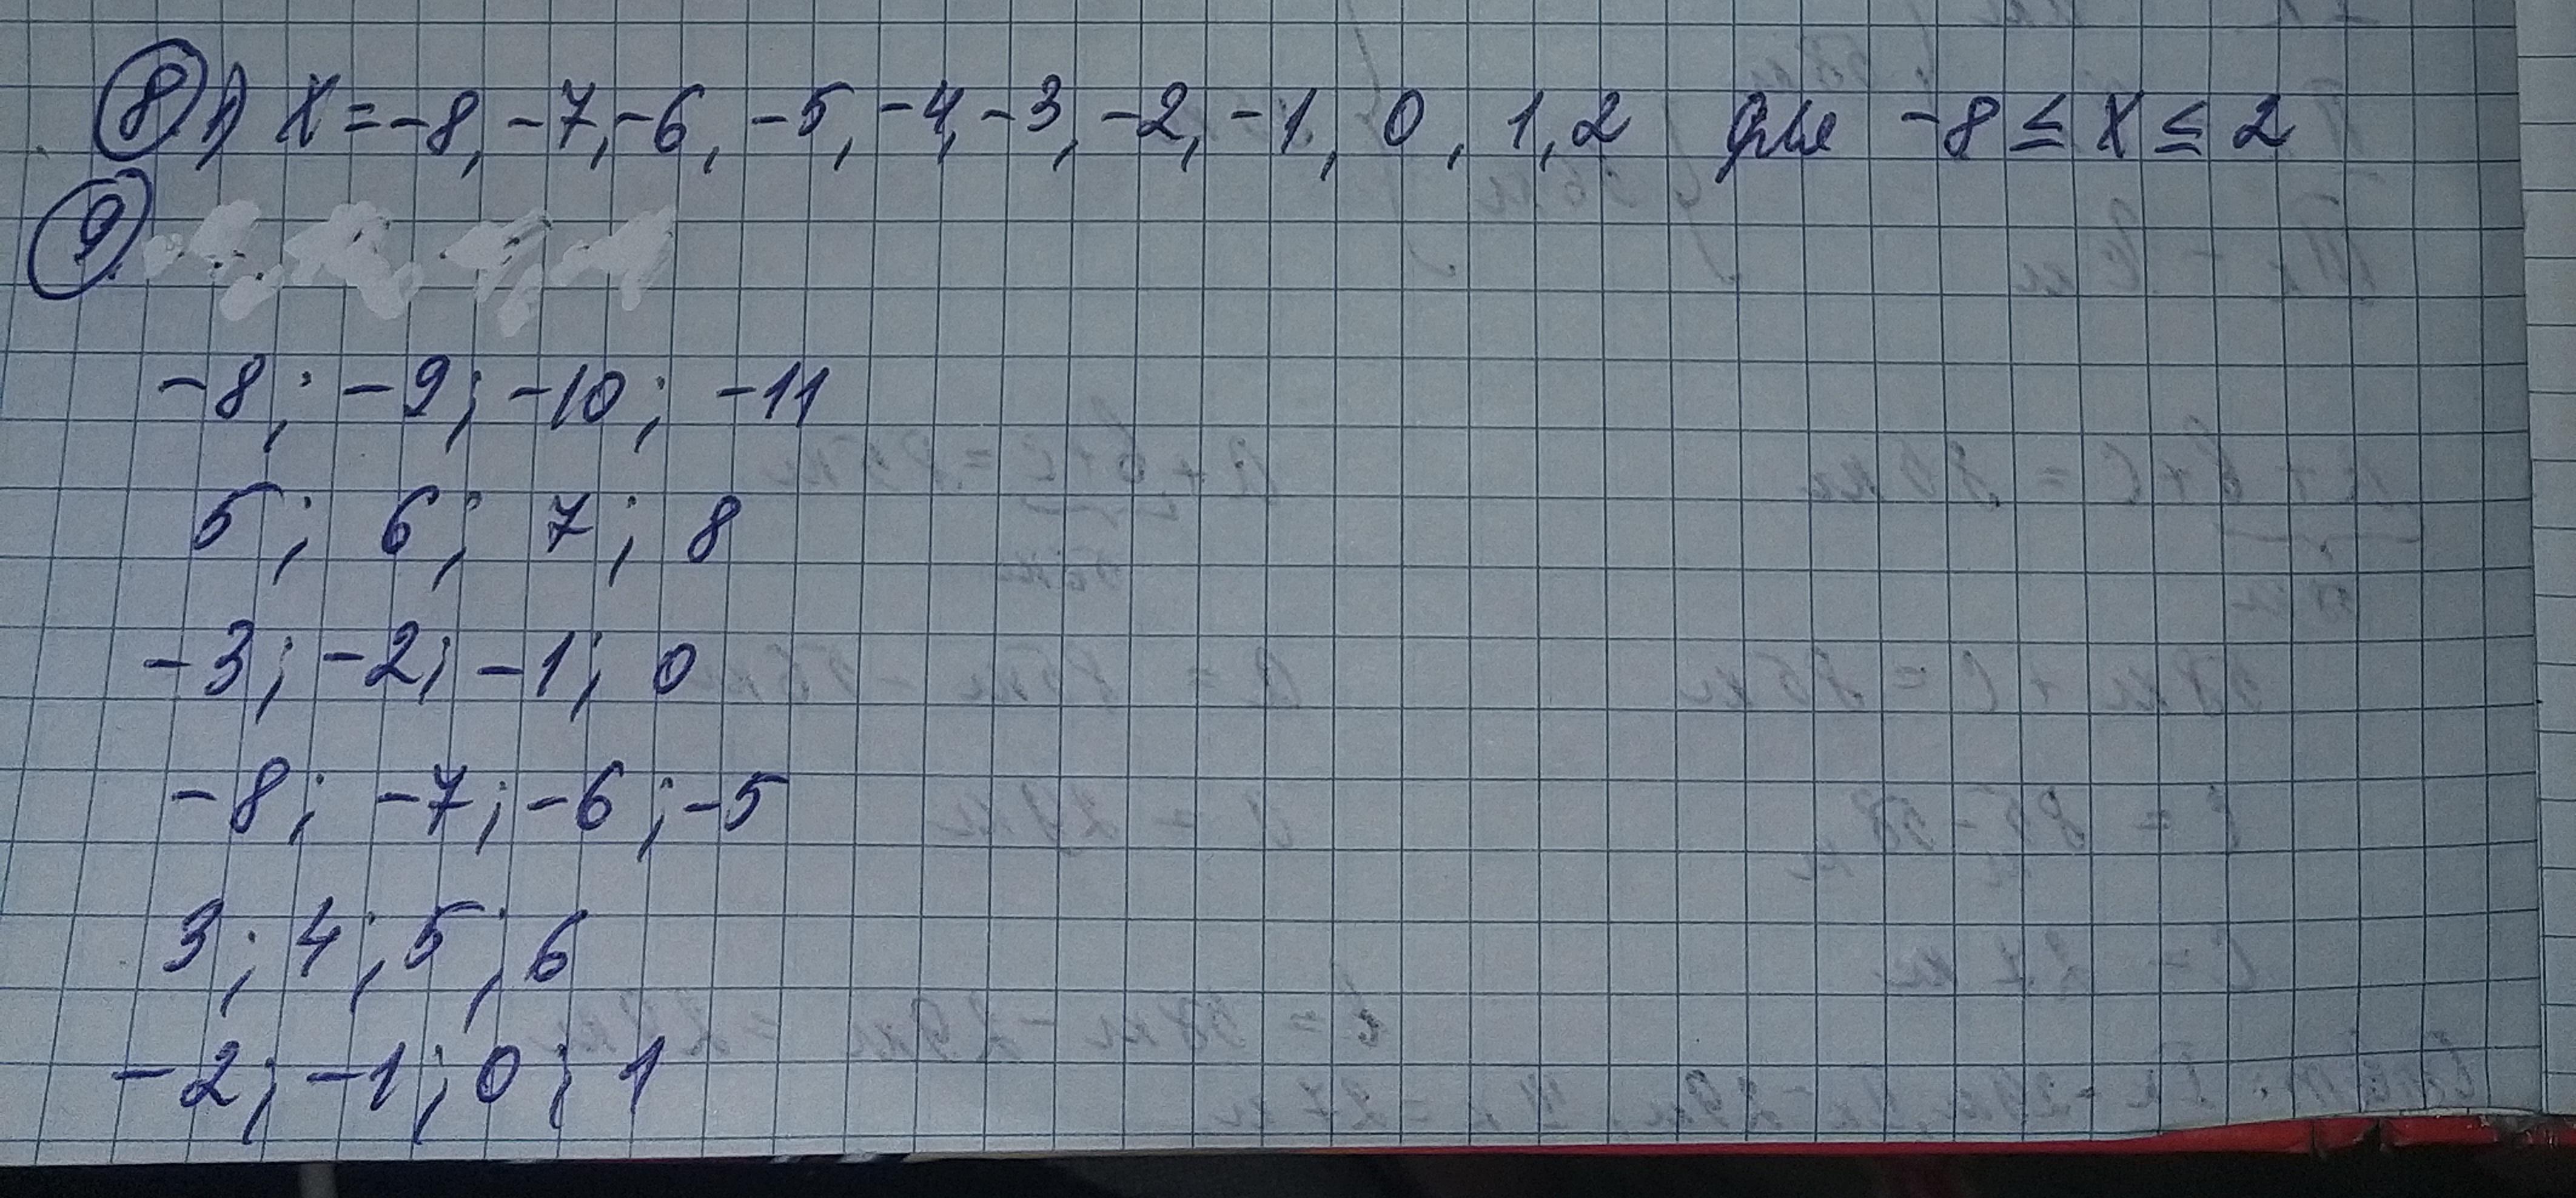 8 h) X = -8, -7, -6, -5, -4, -3, -2, -1, 0, 1, 2 для -8 ≤ X ≤ 2
9.
-8; -9; -10; -11
5; 6; 7; 8
-3; -2; -1; 0
-8; -7; -6; -5
3; 4; 5; 6
-2; -1; 0; 1